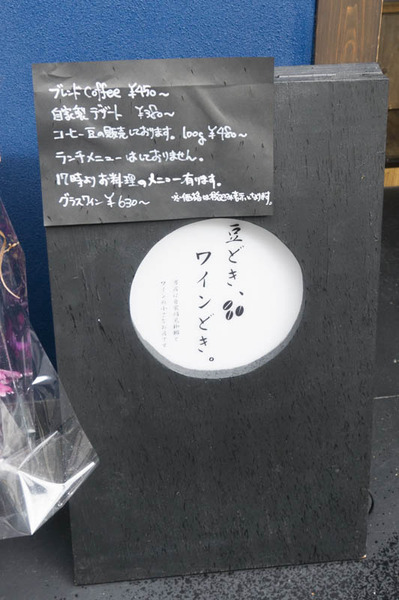 ブレンドcoffee ¥450〜
自家製デザート ¥380〜
コーヒー豆の販売しております。100g ¥480〜
ランチメニューはしておりません。
17時よりお料理のメニュー有ります。
グラスワイン¥630〜 ※価格は税込み表示になります。
豆どき、
ワインどき。